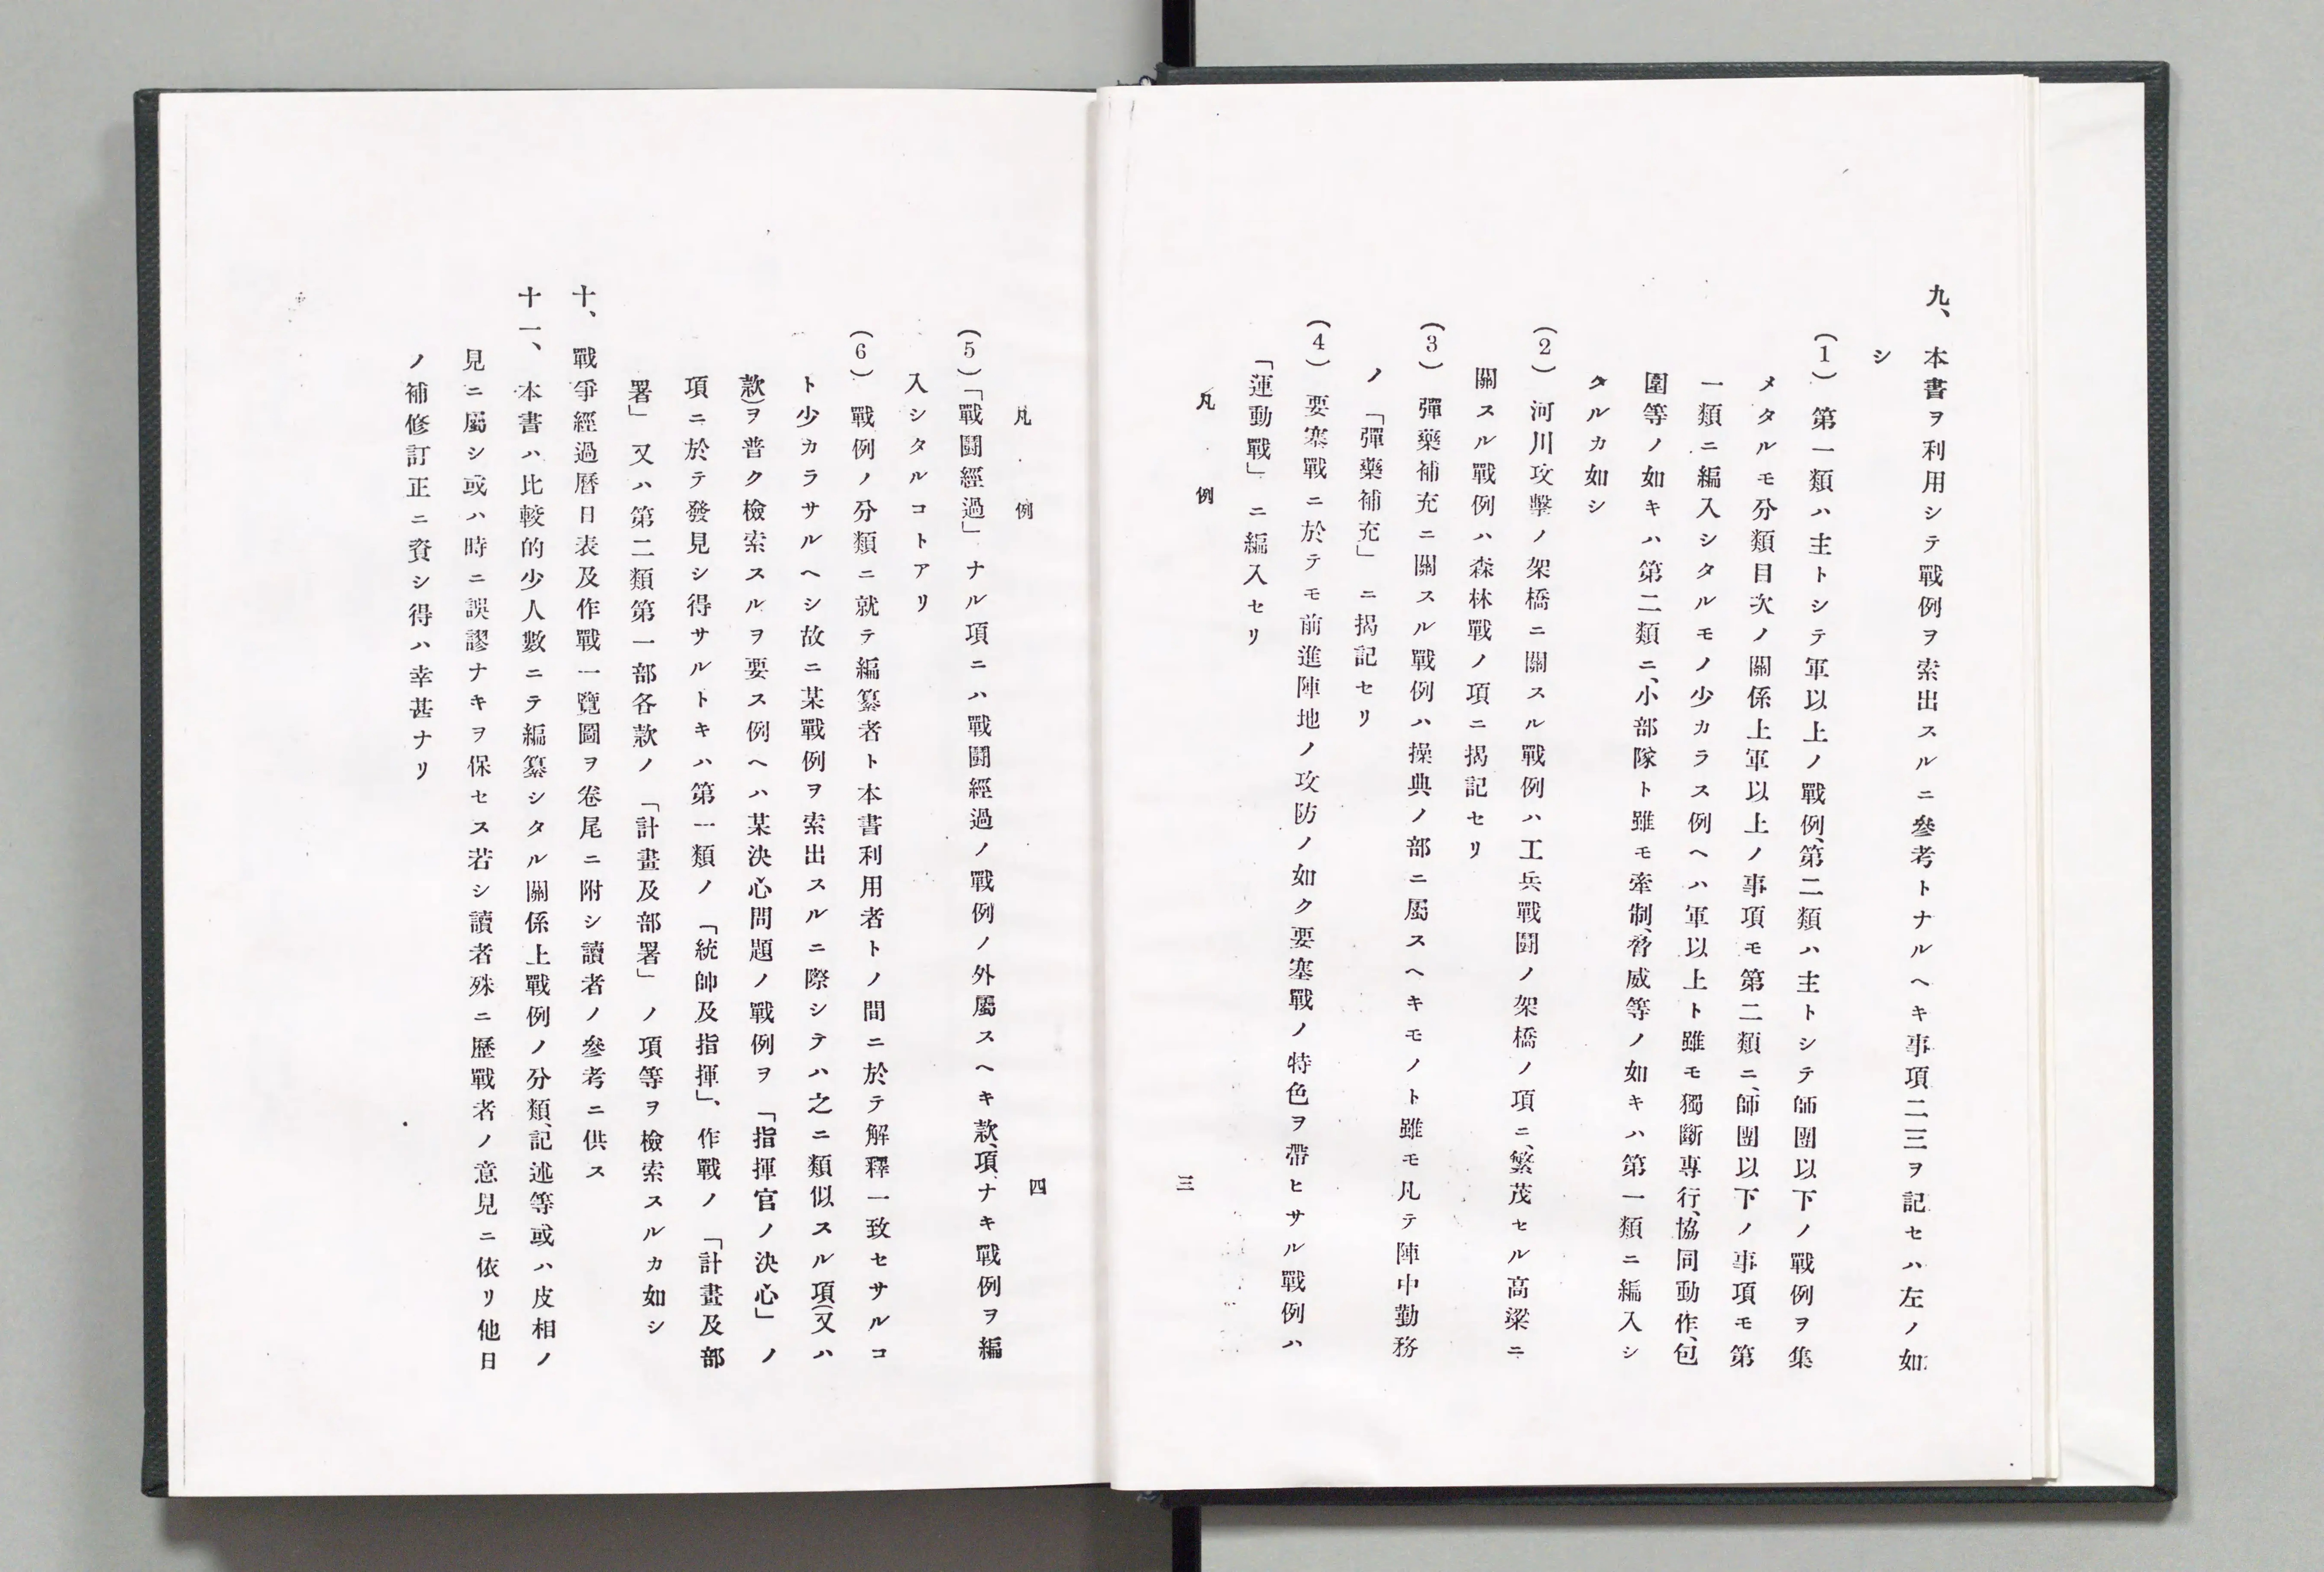 九、本書ヲ利用シテ戰例ヲ索出スルニ參考トナルヘキ事項二三ヲ記セハ左ノ如
シ
(1) 第一類ハ主トシテ軍以上ノ戰例、第二類ハ主トシテ師團以下ノ戰例ヲ集
メタルモ分類目次ノ關係上軍以上ノ事項モ第二類ニ、師團以下ノ事項モ第
一類ニ編入シタルモノ少カラス例ヘハ軍以上ト雖モ獨斷專行、協同動作、包
圍等ノ如キハ第二類ニ、小部隊ト雖モ牽制、脅威等ノ如キハ第一類ニ編入シ
タルカ如シ
(2) 河川攻擊ノ架橋ニ關スル戰例ハ工兵戰鬪ノ架橋ノ項ニ、繁茂セル高粱ニ
關スル戰例ハ森林戰ノ項ニ揭記セリ
(3) 彈藥補充ニ關スル戰例ハ操典ノ部ニ屬スヘキモノト雖モ凡テ陣中勤務
ノ「彈藥補充」ニ揭記セリ
(4) 要塞戰ニ於テモ前進陣地ノ攻防ノ如ク要塞戰ノ特色ヲ帶ヒサル戰例ハ
「運動戰」ニ編入セリ
凡例
三
凡例
四
(5)「戰鬪經過」ナル項ニハ戰鬪經過ノ戰例ノ外屬スヘキ款、項ナキ戰例ヲ編
入シタルコトアリ
(6) 戰例ノ分類ニ就テ編纂者ト本書利用者トノ間ニ於テ解釋一致セサルコ
ト少カラサルヘシ故ニ某戰例ヲ索出スルニ際シテハ之ニ類似スル項(又ハ
款)ヲ普ク檢索スルヲ要ス例ヘハ某決心問題ノ戰例ヲ「指揮官ノ決心」ノ
項ニ於テ發見シ得サルトキハ第一類ノ「統帥及指揮」、作戰ノ「計畫及部
署」又ハ第二類第一部各款ノ「計畫及部署」ノ項等ヲ檢索スルカ如シ
十、戰爭經過曆日表及作戰一覽圖ヲ卷尾ニ附シ讀者ノ參考ニ供ス
十一、本書ハ比較的少人數ニテ編纂シタル關係上戰例ノ分類、記述等或ハ皮相ノ
見ニ屬シ或ハ時ニ誤謬ナキヲ保セス若シ讀者殊ニ歷戰者ノ意見ニ依リ他日
ノ補修訂正ニ資シ得ハ幸甚ナリ